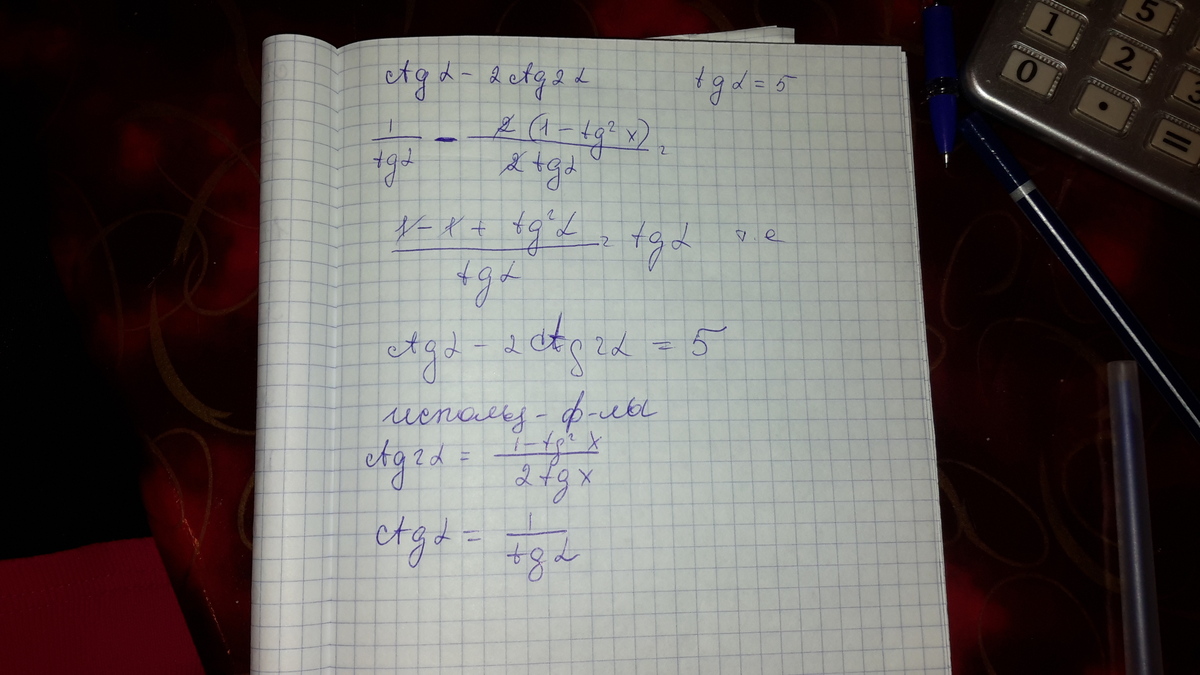 ctg α - 2 ctg 2 α tg α = 5
1/tg α - 2 (1 - tg² x)/2 tg α =
1 - 1 + tg² α/tg α = tg α т.е
ctg α - 2 ctg 2 α = 5
использ - ф-лы
ctg 2 α = 1 - tg² x/2 tg x
ctg α = 1/tg α
1
5
0
2
3
.
=